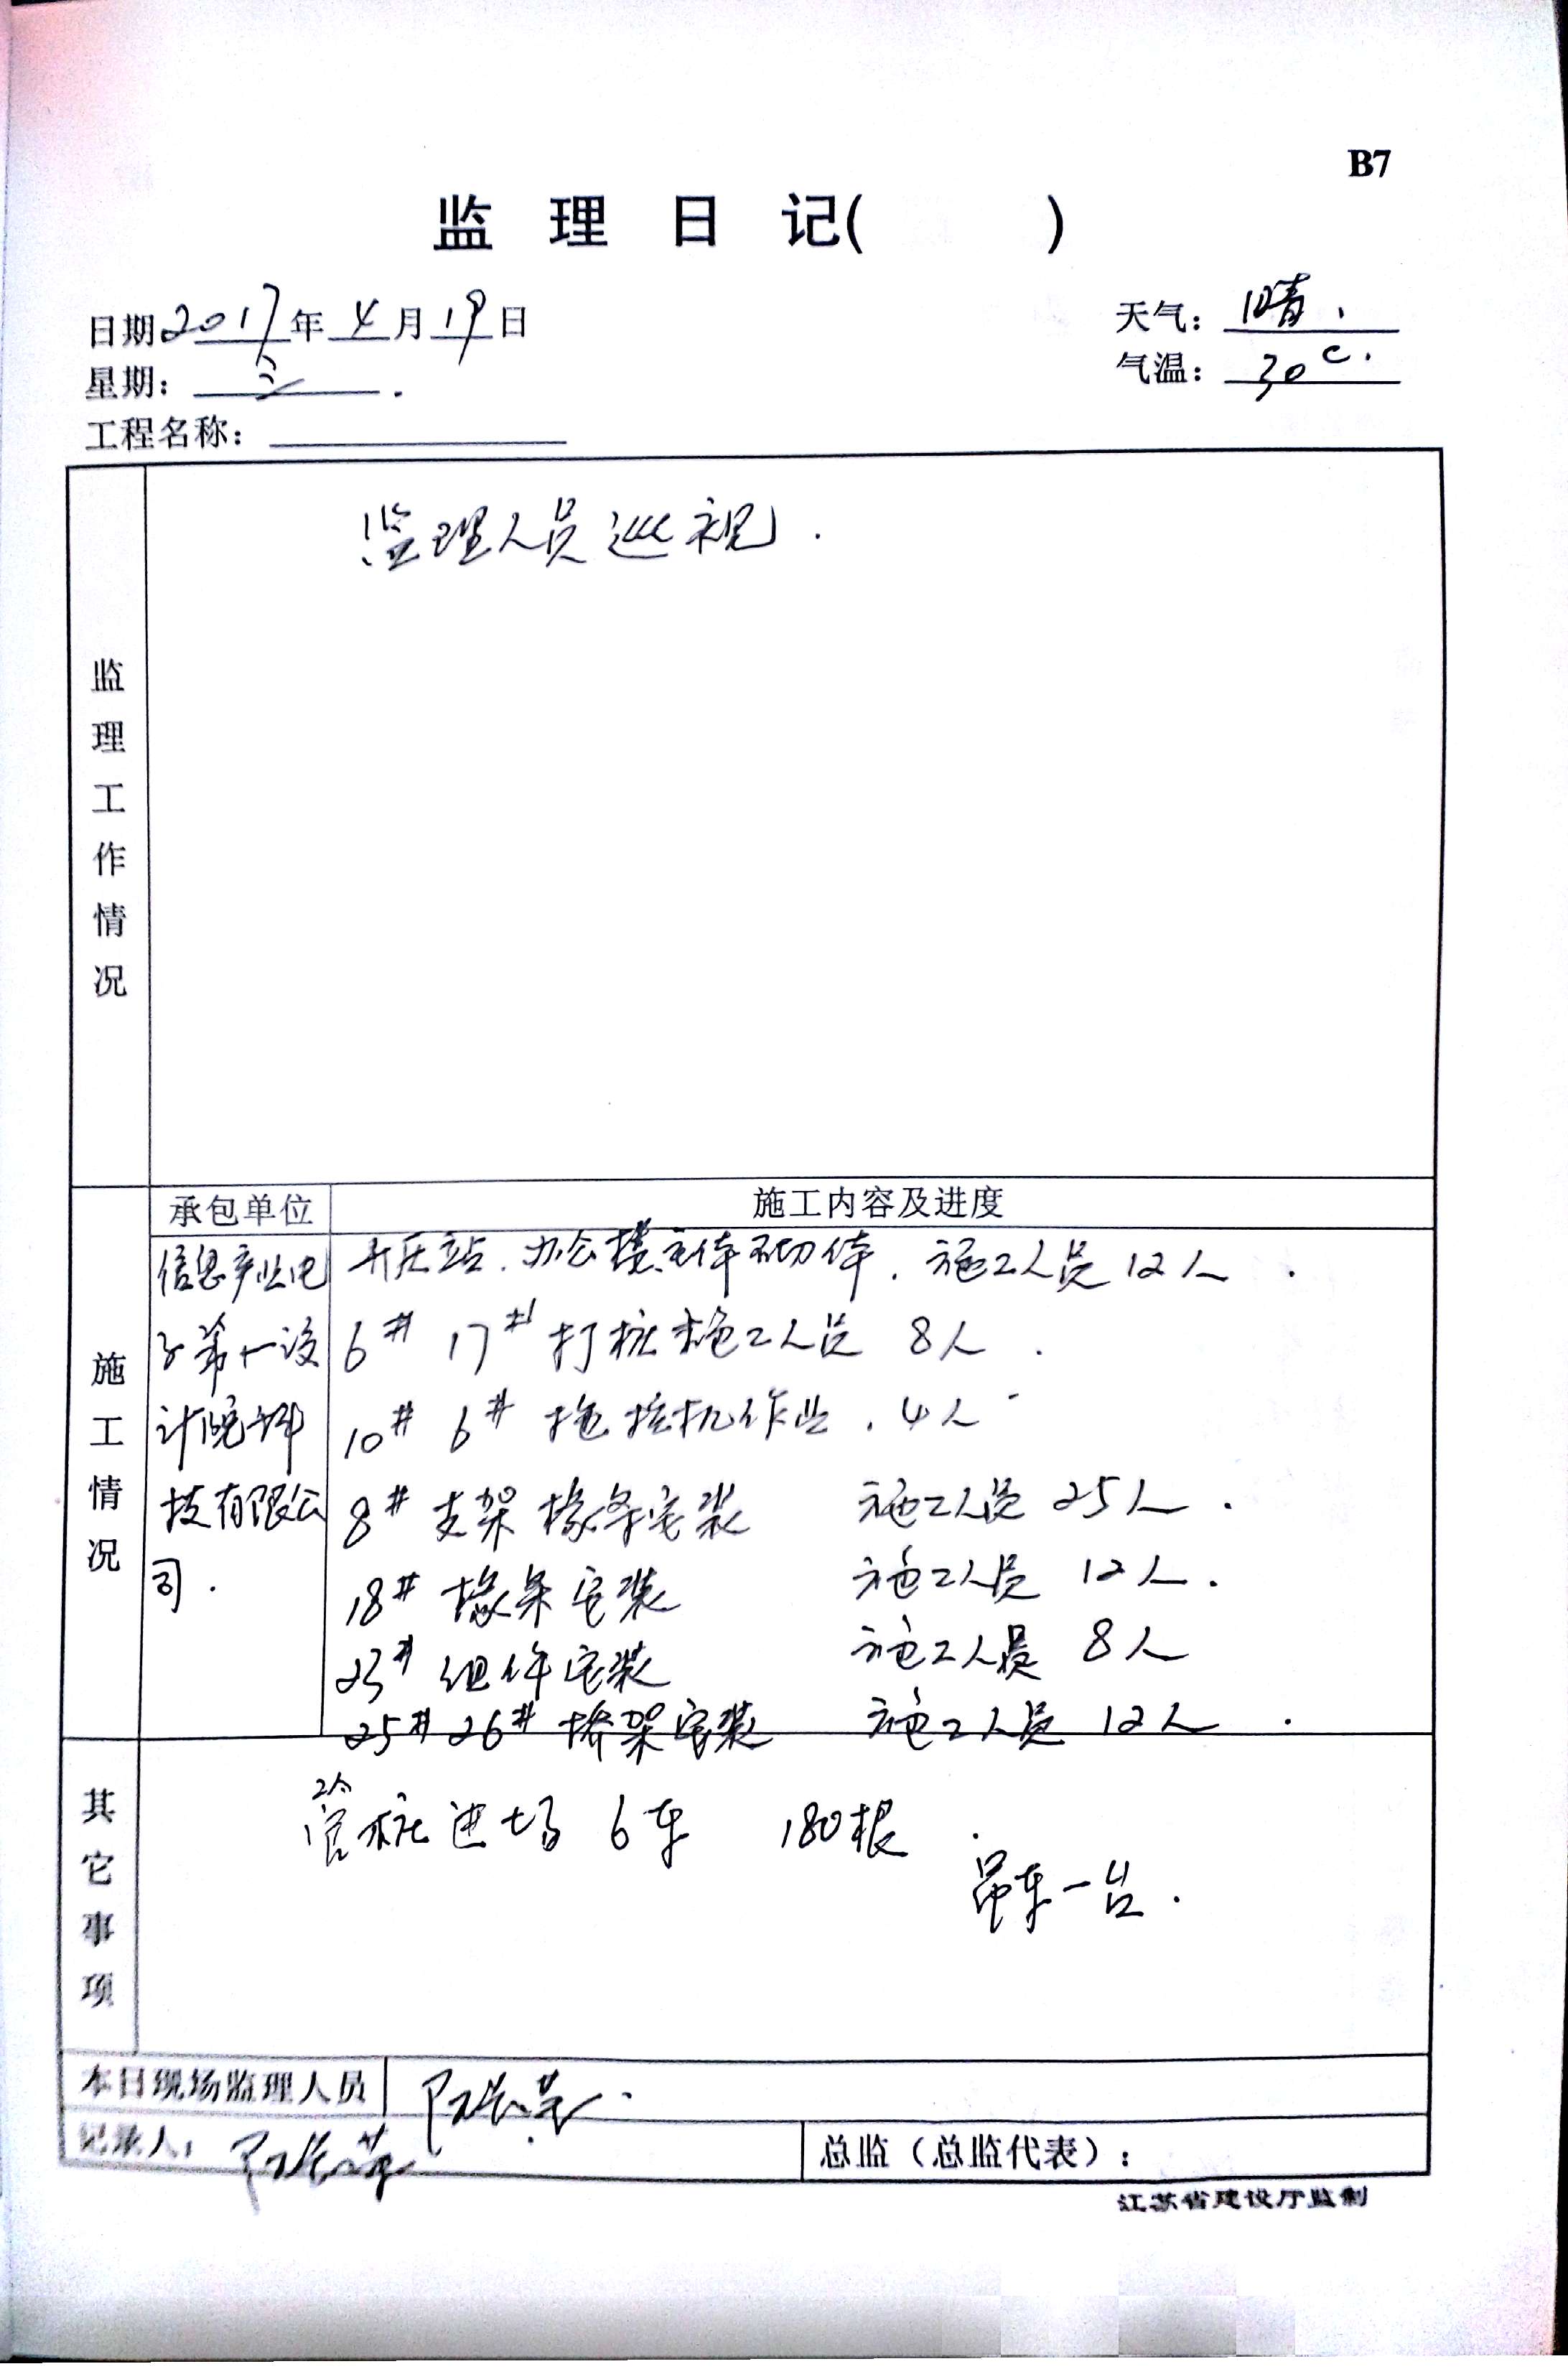 B7
监理日记( )
日期2017年4月19日
天气：晴.
星期：三.
气温：30℃.
工程名称：
监理工作情况
监理人员巡视.
施工情况
承包单位
施工内容及进度
信息产业电
子第十一设
计院科
技有限公
司.
升压站.办公楼主体砌体.施工人员12人.
6# 17#打桩施工人员 8人.
10# 6# 拖桩机作业.4人
8# 支架檩条安装 施工人员 25人.
18# 檩条安装 施工人员 12人.
23# 组件安装 施工人员 8人
25# 26# 桥架安装 施工人员 12人.
其它事项
管桩进场 6车 180根.
吊车一台.
本日现场监理人员
记录人：
总监（总监代表）：
江苏省建设厅监制